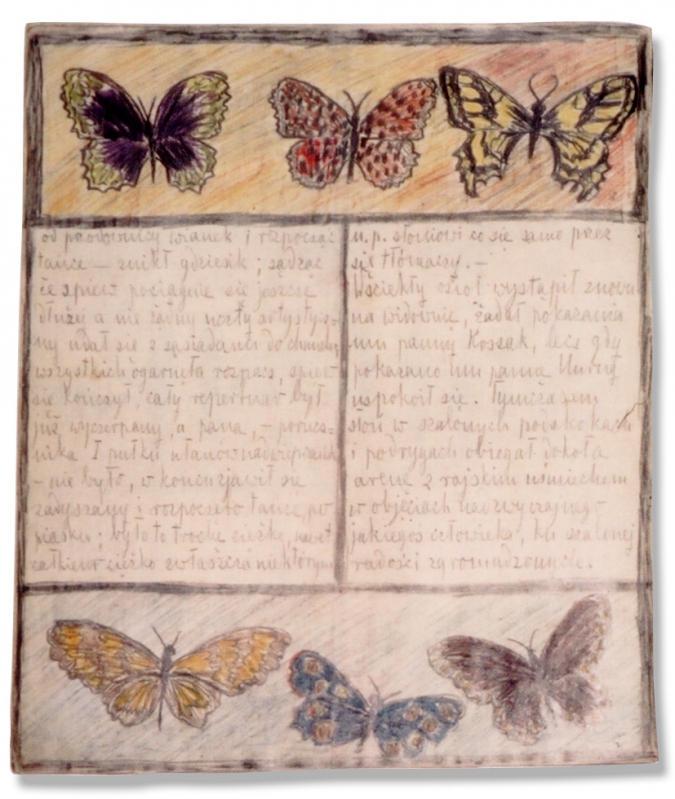 od przodownicy wianek i rozpocząć
tańce — znikł gdzieśik; sądząc
że śpiew pociągnie się jeszcze
dłużej a nie żądny uczty artystycz-
ny udał się z sąsiadami do
wszystkich ogarnęła rozpacz, śpiew
się kończył, cały repertuar był
już wyczerpany, a pana, — porucz-
nika I pułku ułanów
— nie było, w końcu zjawił się
zadyszany i rozpoczęto tańce po
piasku; było to trochę ciężko, nawet
całkiem ciężko zwłaszcza niektórym
n.p. słoniowi co się samo przez
się tłómaczy. —
Wściekły osioł wystąpił znowu
na widownię, żądał pokazania
mu panny Kossak, lecz gdy
pokazano mu pannę
uspokoił się. Tymczasem
słoń w szalonych podskokach
i podrygach obiegał dokoła
arenę z rajskim uśmiechem
w objęciach nadzwyczajnego
jakiegoś człowieka, ku szalonej
radości zgromadzonych.